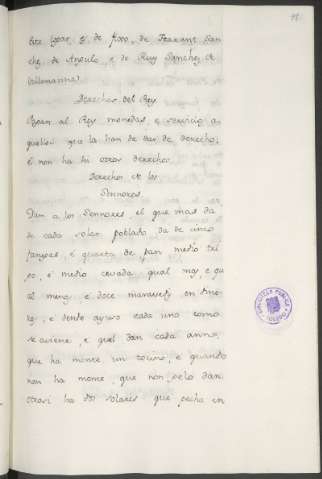 este logar es de fijos, de Ferrant San
chez de Angulo, e de Ruy Sanchez de
Derechos del Rey
Pagan al Rey monedas, e servicio a
quellos que la han de dar de derecho;
e non ha hi otros derechos
Derechos de los
Sennores
Dan a los Sennores, el que mas da
de cada solar poblado da de cinco
fanegas, e quarta de pan medio tri
go, e medio cevada, qual mas, e qu
al menos e doce maravedis en
e dende ayuso cada uno como
se aviene, e quel dan cada anno,
que ha monte un tocino, e quando
non ha monte, que non gelo dan
otrosi ha dos solares que pecha en
BIBLIOTECA PUBLICA
TOLEDO